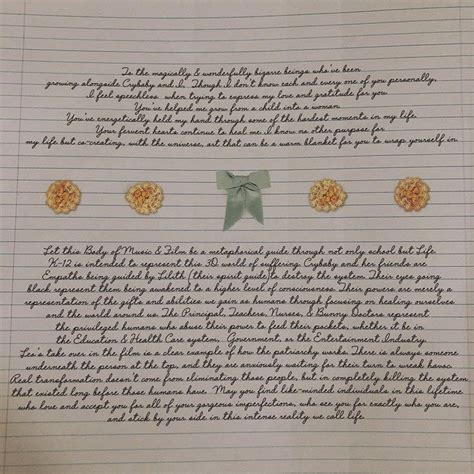 To the magically & wonderfully bizarre beings who've been
growing alongside Crybaby and I, Though I don't know each and every one of you personally,
I feel speechless when trying to express my love and gratitude for you
You've helped me grow from a child into a woman
You've energetically held my hand through some of the hardest moments in my life.
Your fervent hearts continue to heal me. I know no other purpose for
my life but co-creating, with the universe, art that can be a warm blanket for you to wrap yourself in
Let this Body of Music & Film be a metaphorical guide through not only school but Life.
K-12 is intended to represent this 3D world of suffering. Crybaby and her friends are
Empaths being guided by Lilith (their spirit guide)to destroy the system. Their eyes going
black represent them being awakened to a higher level of consciousness. Their powers are merely a
representation of the gifts and abilities we gain as humans through focusing on healing ourselves
and the world around us. The Principal, Teachers, Nurses, & Bunny Doctors represent
the privileged humans who abuse their power to feed their pockets, whether it be in
the Education & Health Care system, Government, or the Entertainment Industry.
Leo's take over in the film is a clear example of how the patriarchy works. There is always someone
underneath the person at the top, and they are anxiously waiting for their turn to wreak havoc.
Real transformation doesn't come from eliminating those people, but in completely killing the system
that existed long before those humans have. May you find like-minded individuals in this lifetime
who love and accept you for all of your gorgeous imperfections, who see you for exactly who you are,
and stick by your side in this intense reality we call life.